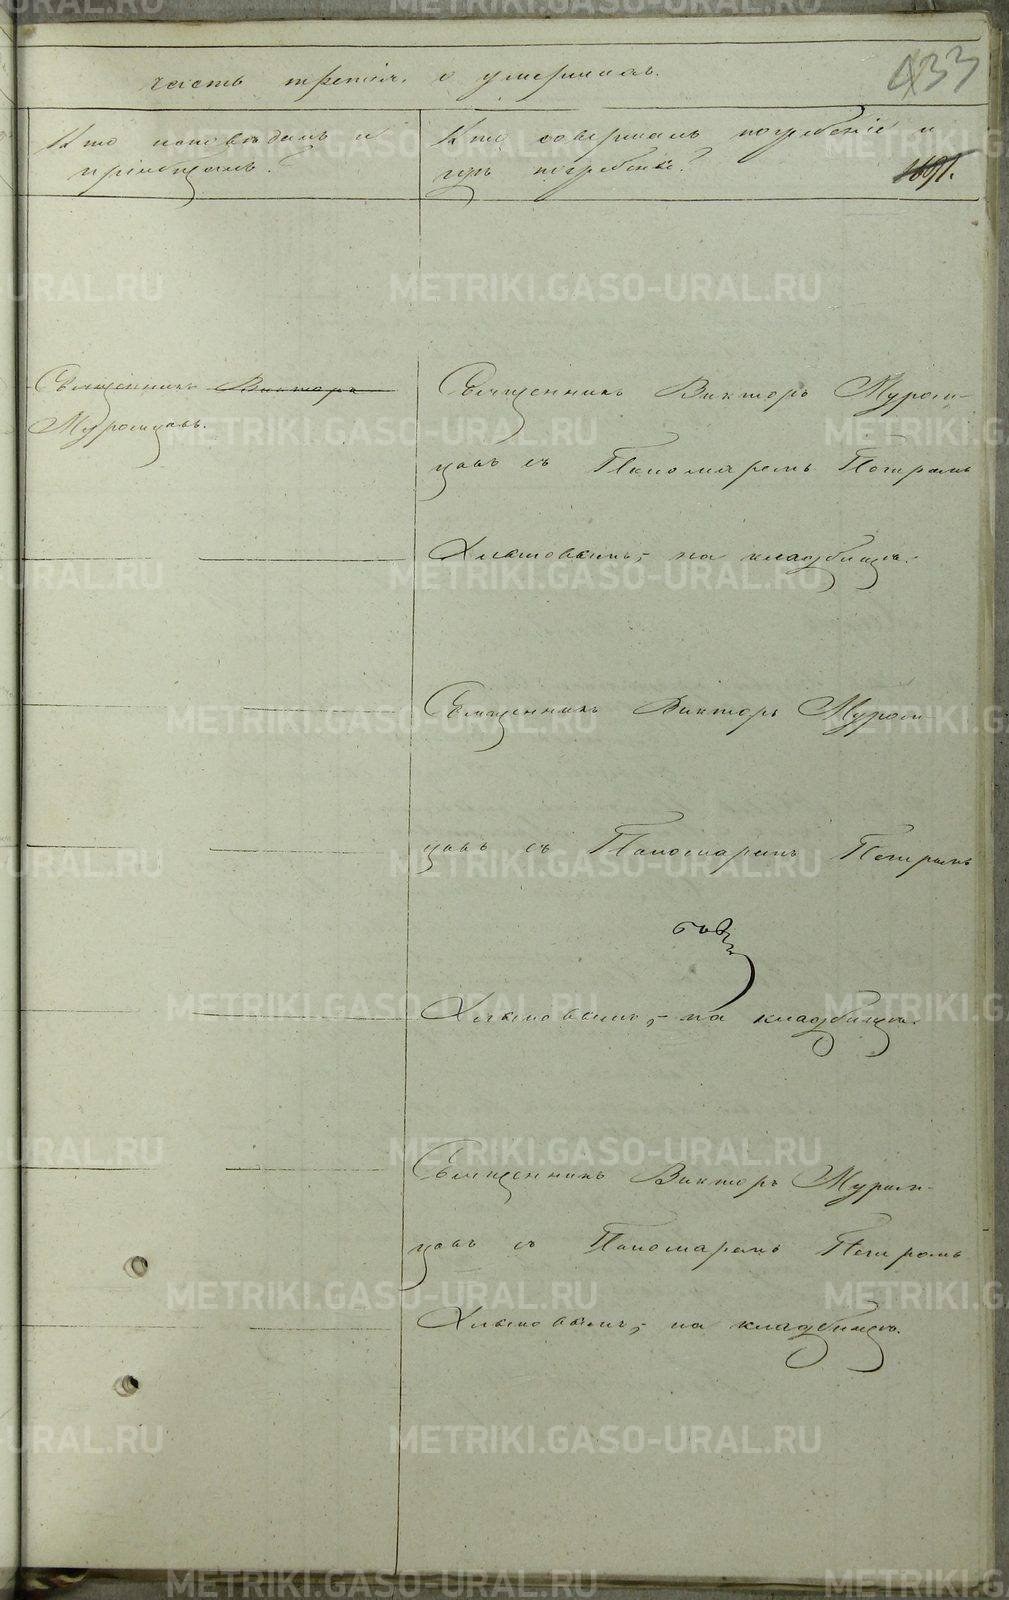 часть третiя, о умершихъ.
433
Кто исповѣдалъ и
прiобщалъ?
Кто совершалъ погребенiе и
гдѣ погребены?
Священникъ Викторъ
Муромцовъ.
Священникъ Викторъ Муром-
цовъ съ Пономаремъ Петромъ
на кладбищѣ.
Священникъ Викторъ Муром-
цовъ съ Пономаремъ Петромъ
на кладбищѣ.
Священникъ Викторъ Муром-
цовъ съ Пономаремъ Петромъ
на кладбищѣ.
METRIKI.GASO-URAL.RU